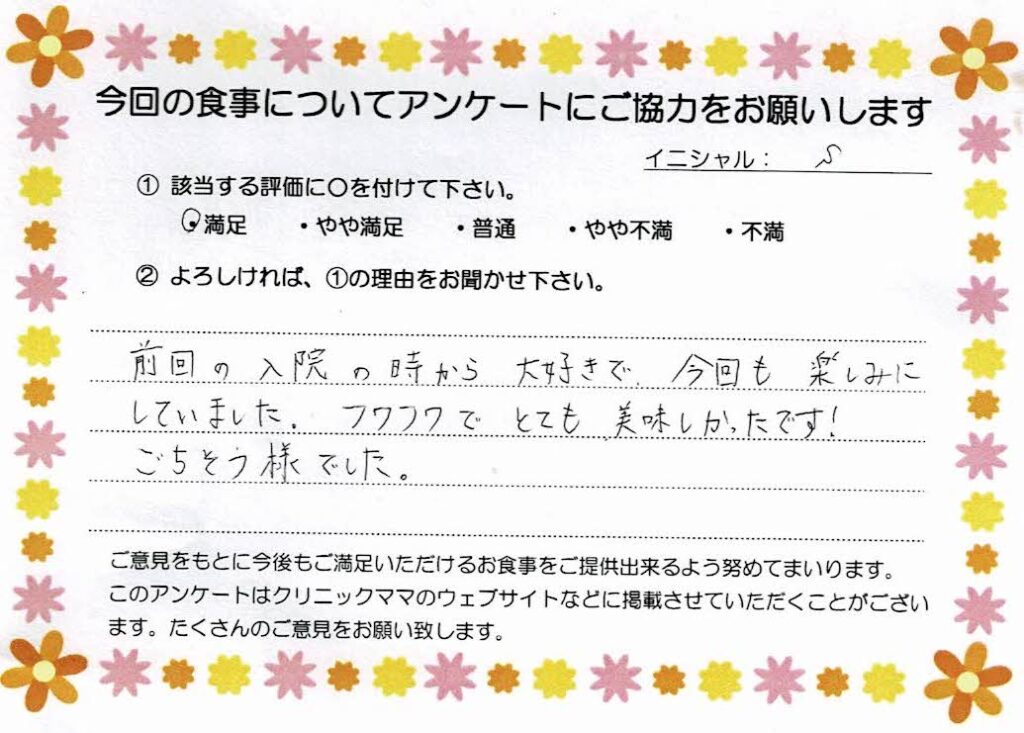 今回の食事についてアンケートにご協力をお願いします
イニシャル： S
① 該当する評価に○を付けて下さい。
・満足 ・やや満足 ・普通 ・やや不満 ・不満
② よろしければ、①の理由をお聞かせ下さい。
前回の入院の時から 大好きで、今回も 楽しみに
していました。フワフワで とても 美味しかったです!
ごちそう様でした。
ご意見をもとに今後もご満足いただけるお食事をご提供出来るよう努めてまいります。
このアンケートはクリニックママのウェブサイトなどに掲載させていただくことがござい
ます。たくさんのご意見をお願い致します。